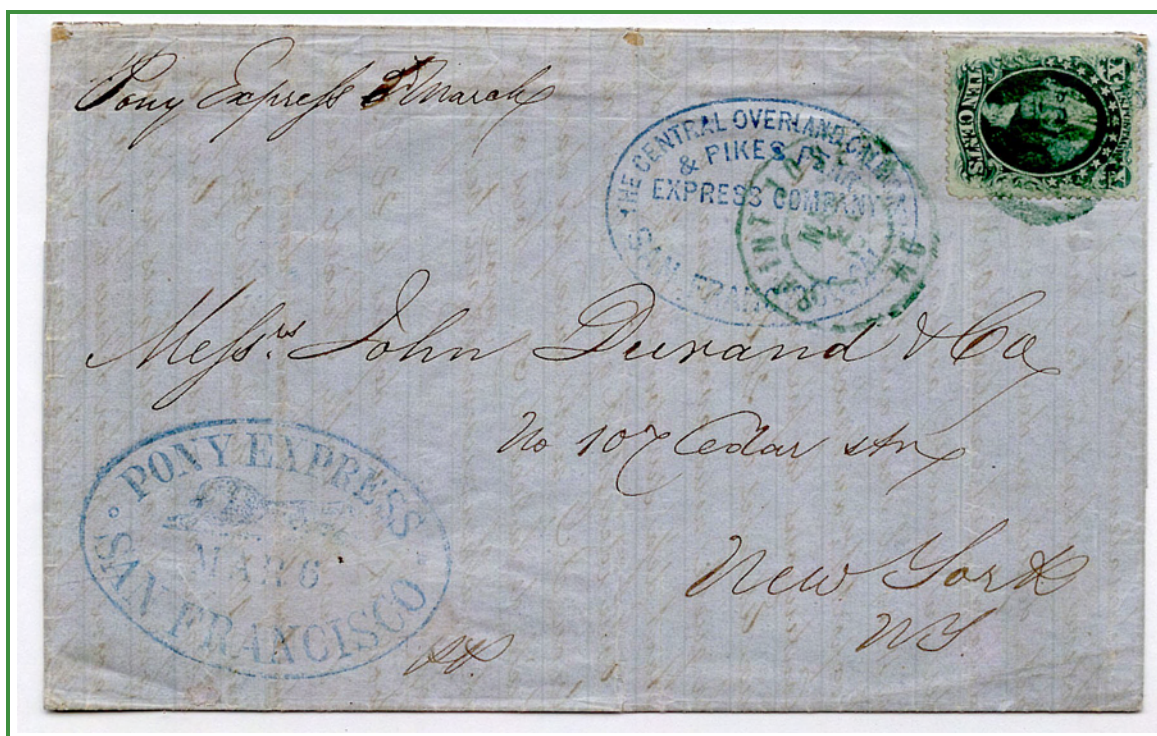 Pony Express March
THE CENTRAL OVERLAND
& PIKES
EXPRESS COMPANY
SAN FRAN
SAINT JOS
TEN CENTS
Messrs. John Durand & Co
No 107 Cedar str
New York
NY.
PONY EXPRESS
MAR 6
SAN FRANCISCO